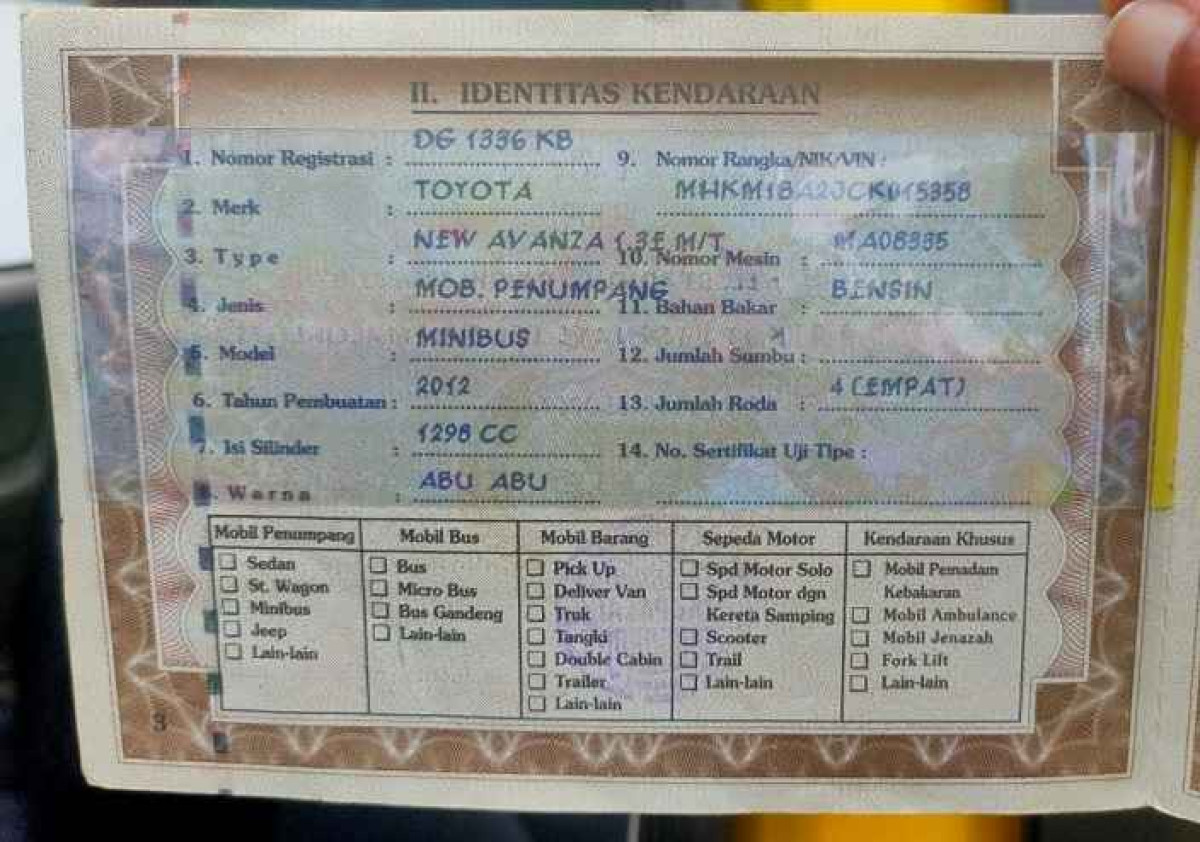 II. IDENTITAS KENDARAAN
1. Nomor Registrasi : DG 1336 KB
2. Merk : TOYOTA
3. Type : NEW AVANZA 1.3E M/T
4. Jenis : MOB. PENUMPANG
5. Model : MINIBUS
6. Tahun Pembuatan : 2012
7. Isi Silinder : 1298 CC
8. Warna : ABU ABU
9. Nomor Rangka/NIK/VIN :
10. Nomor Mesin : MA08335
11. Bahan Bakar : BENSIN
12. Jumlah Sumbu :
13. Jumlah Roda : 4 (EMPAT)
14. No. Sertifikat Uji Tipe :
Mobil Penumpang
Sedan
St. Wagon
Minibus
Jeep
Lain-lain
Mobil Bus
Bus
Micro Bus
Bus Gandeng
Lain-lain
Mobil Barang
Pick Up
Deliver Van
Truk
Tangki
Double Cabin
Trailer
Lain-lain
Sepeda Motor
Spd Motor Solo
Spd Motor dgn
Kereta Samping
Scooter
Trail
Lain-lain
Kendaraan Khusus
Mobil Pemadam
Kebakaran
Mobil Ambulance
Mobil Jenazah
Fork Lift
Lain-lain
3